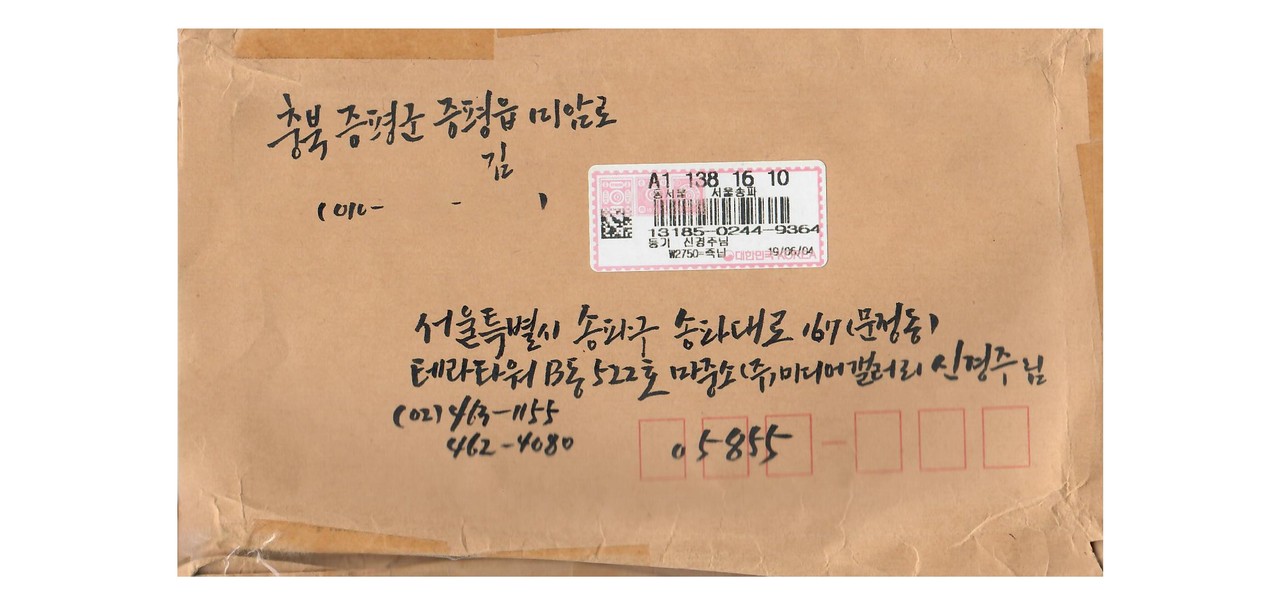 충북 증평군 증평읍 미암로
김
(010-     -     )
A1 138 16 10
동서울 서울송파
13185-0244-9364
등기 신경주님
₩2750-즉납 19/06/04
대한민국 KOREA
서울특별시 송파구 송파대로 167(문정동)
테라타워 B동 522호 마중소(주)미디어갤러리 신경주님
(02)463-1155
462-4080
05855